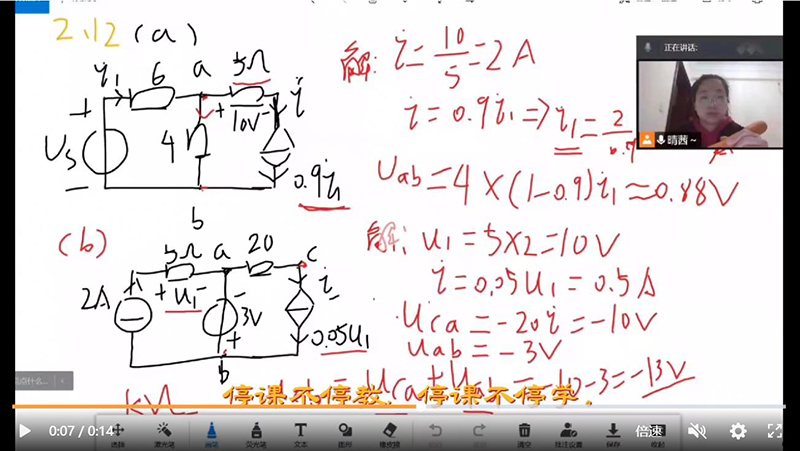 2,12 (a)
i₁ 6 a 5Ω
i
+ 10V -
+
Us 4
-
0.9i₁
b
解: i = 10/5 = 2A
i = 0.9i₁ ⇒ i₁ = 2/0.9
Uab = 4×(1-0.9)i₁ ≈ 0.88V
正在讲话:
晴茜~
(b)
5Ω a 20 c
+ u₁ - - i
2A 3V
+ 0.05U₁
b
解: U₁ = 5×2 = 10V
i = 0.05U₁ = 0.5A
Uca = -20i = -10V
Uab = -3V
= Uca + Uab = -10-3 = -13V
KVL
停课不停教, 停课不停学.
0:07 / 0:14
选择 激光笔 画笔 荧光笔 文本 图形 橡皮擦 撤销 重做 清空 批注设置 保存 收起
倍速